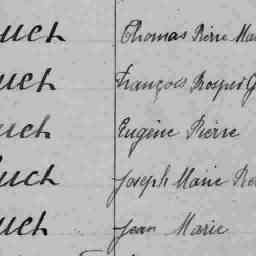 uch Thomas Pierre Mar
uch François Prosper G
uch Eugène Pierre
uch Joseph Marie
uch Jean Marie